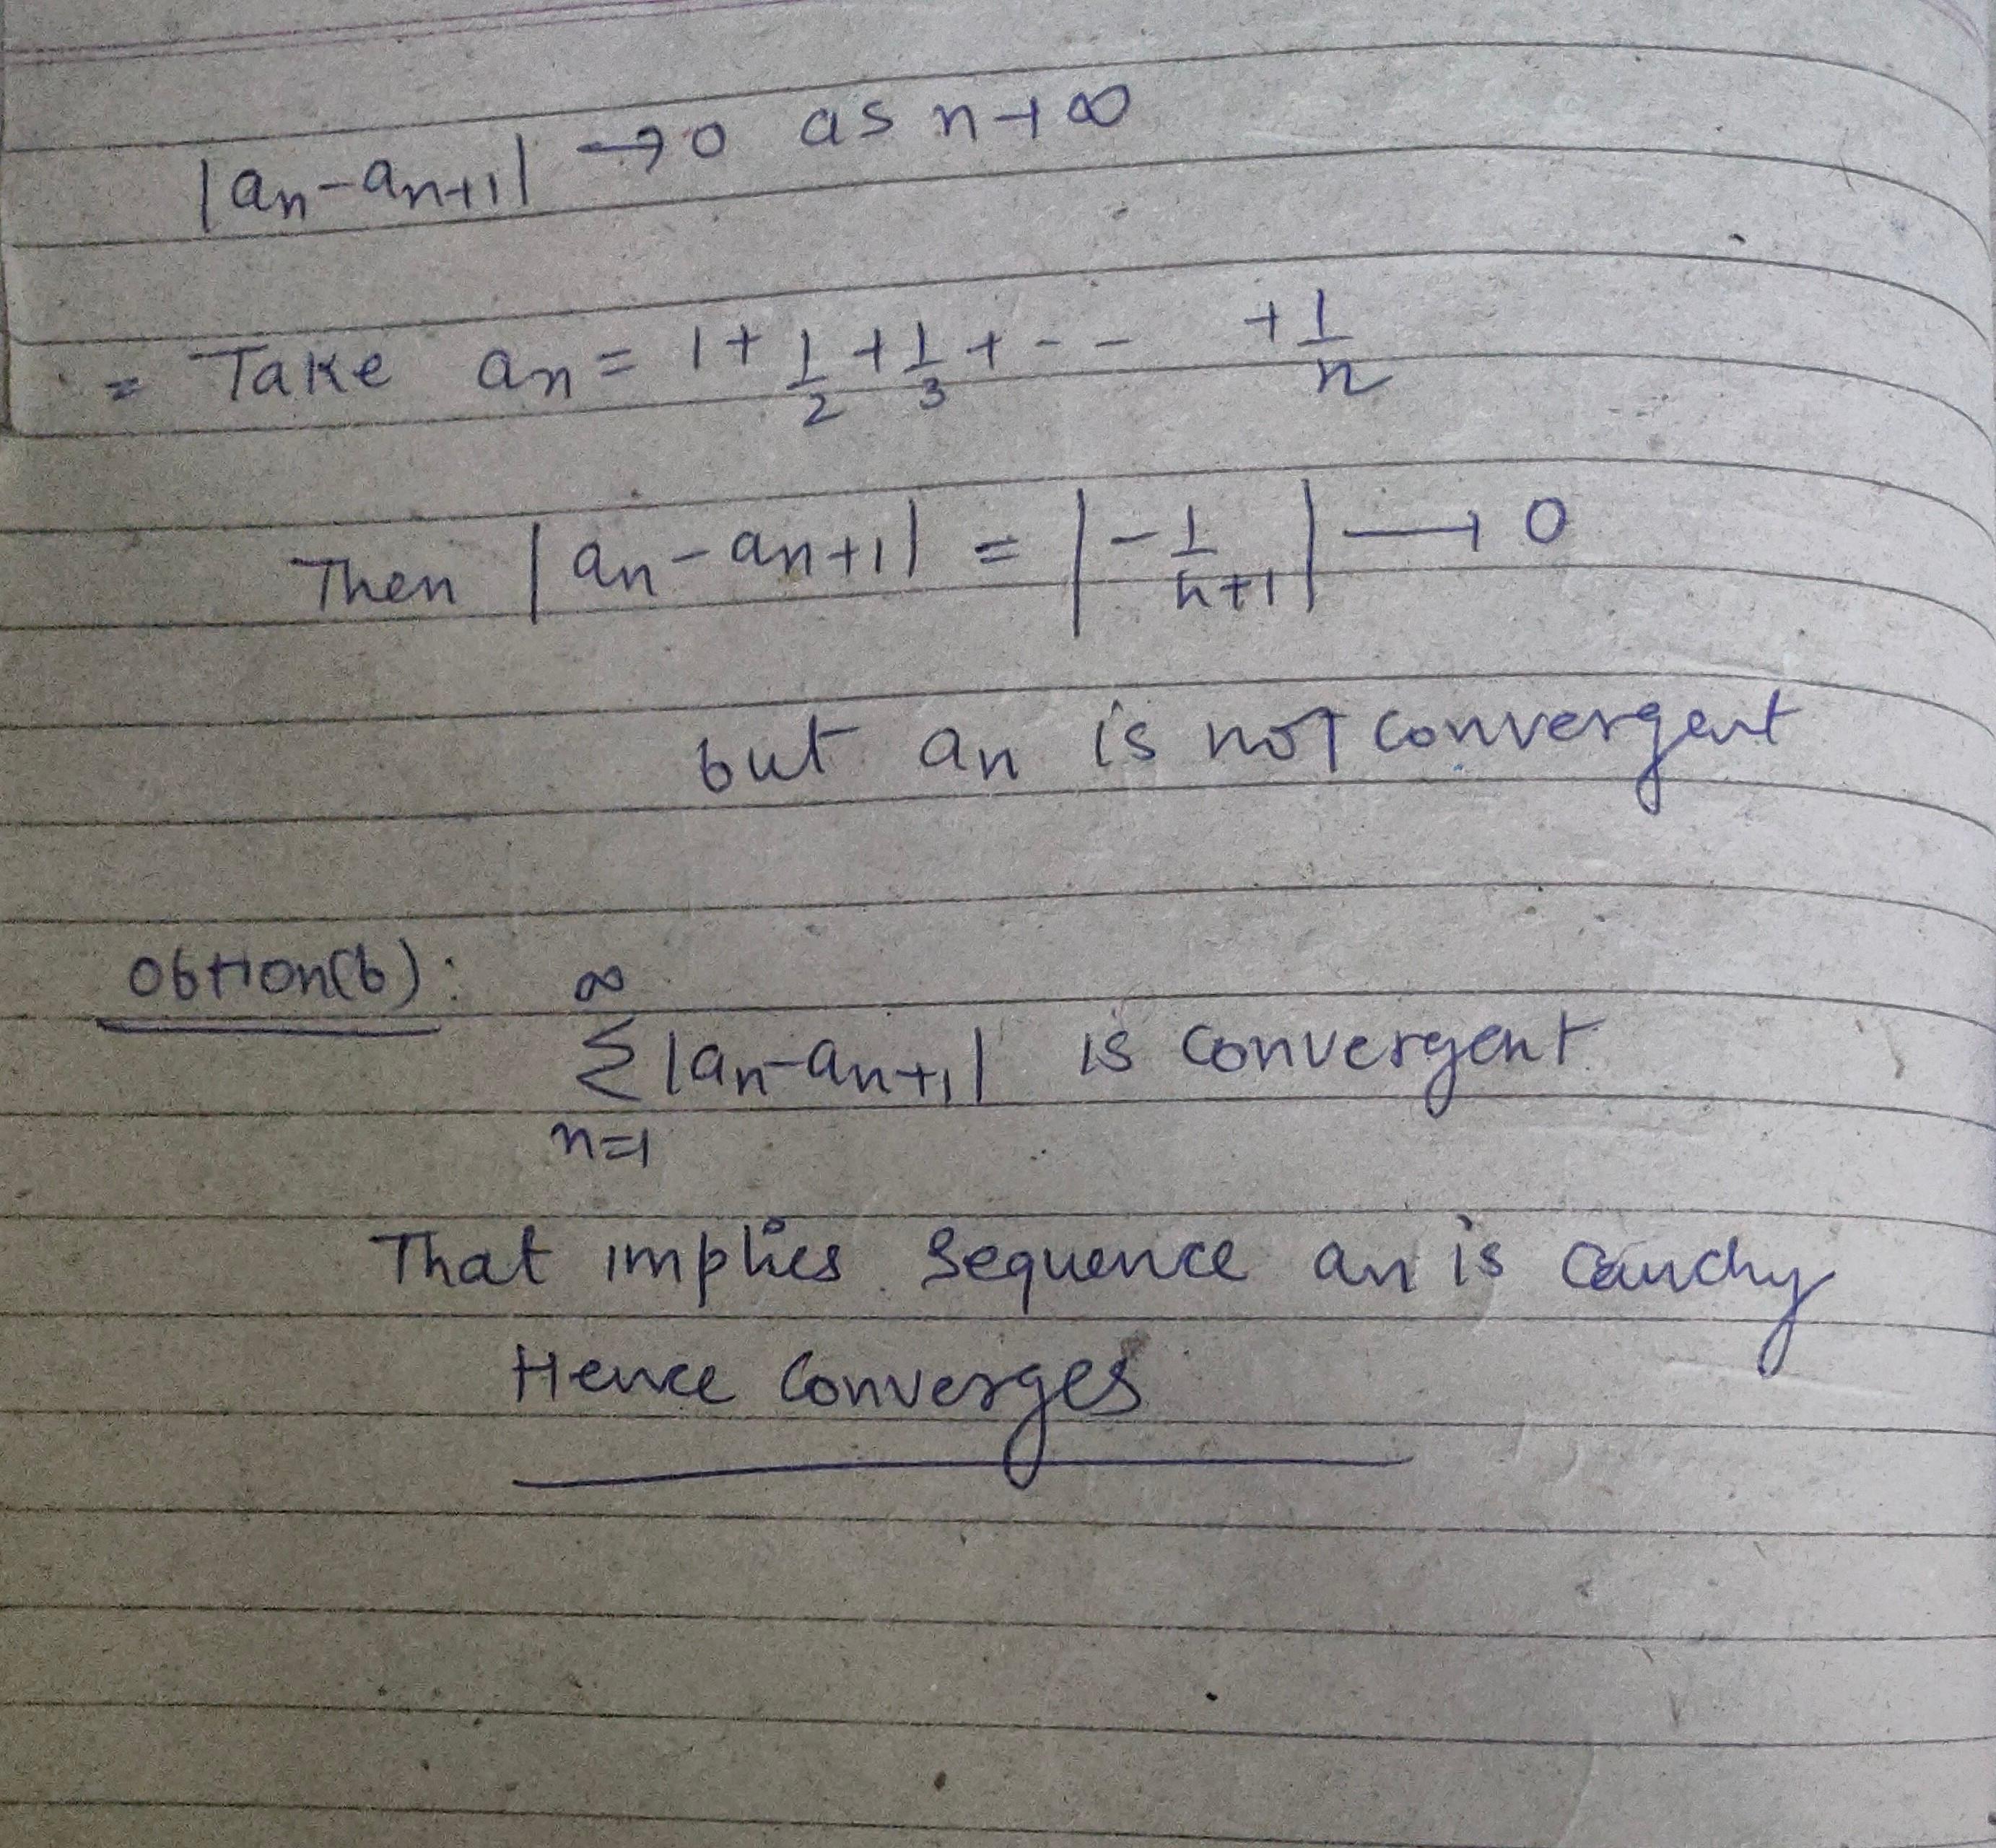 |an-an+1| → 0 as n→∞
= Take an = 1 + 1/2 + 1/3 + - - + 1/n
Then |an-an+1| = |-1/n+1| → 0
but an is not convergent
obtion(b): ∞
Σ |an-an+1| is convergent
n=1
That implies sequence an is cauchy
Hence Converges